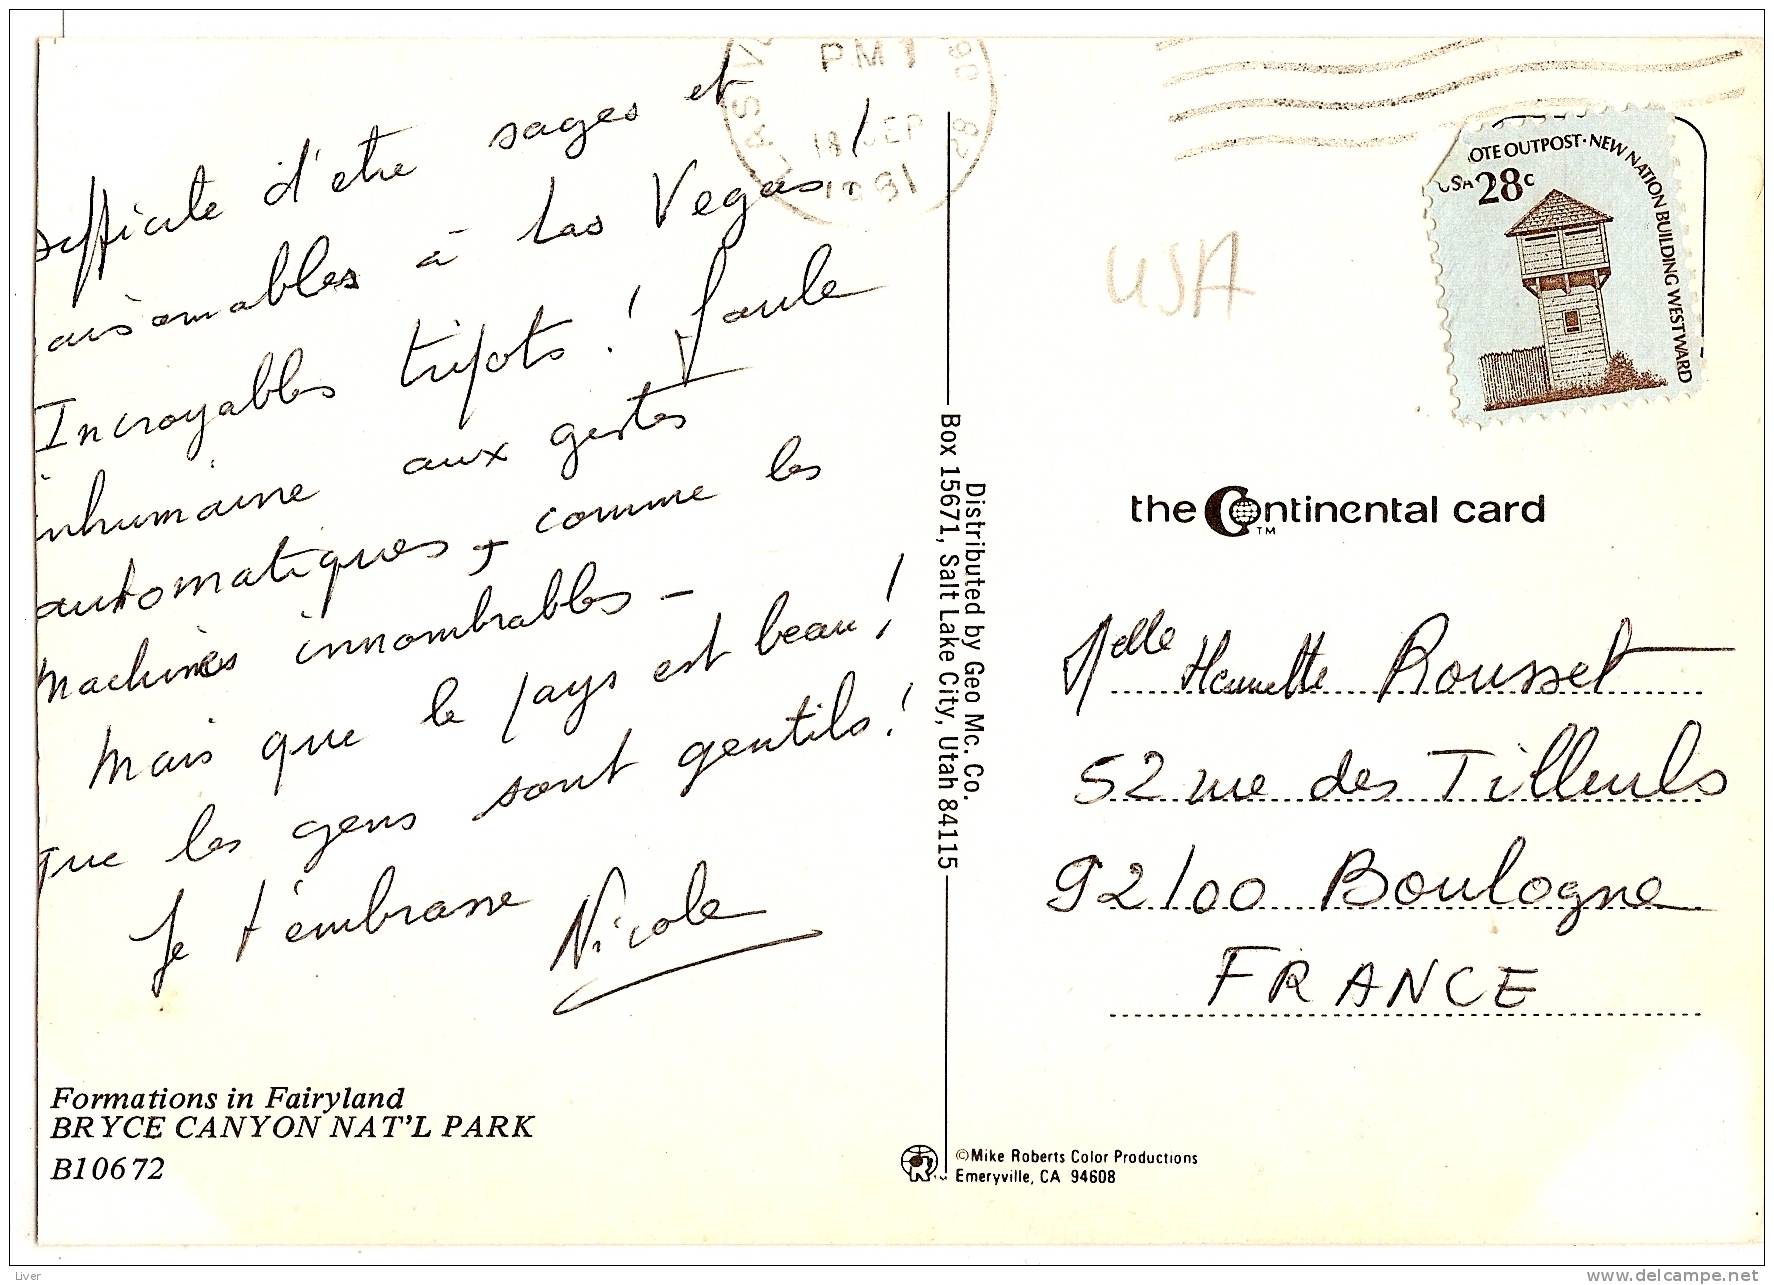 difficile d'etre sages et
raisonnables à Las Vegas!
Incroyables tripots! Foule
inhumaine aux gestes
automatiques, comme les
machines innombrables -
Mais que le pays est beau!
que les gens sont gentils!
Je t'embrasse Nicole
Formations in Fairyland
BRYCE CANYON NAT'L PARK
B10672
PM 1
18 SEP
1981
USA
OTE OUTPOST · NEW NATION BUILDING WESTWARD
USA 28c
Distributed by Geo Mc. Co.
Box 15671, Salt Lake City, Utah 84115
the Continental card
TM
Melle Henriette Rousset
52 rue des Tilleuls
92100 Boulogne
FRANCE
©Mike Roberts Color Productions
Emeryville, CA 94608
Liver
www.delcampe.net